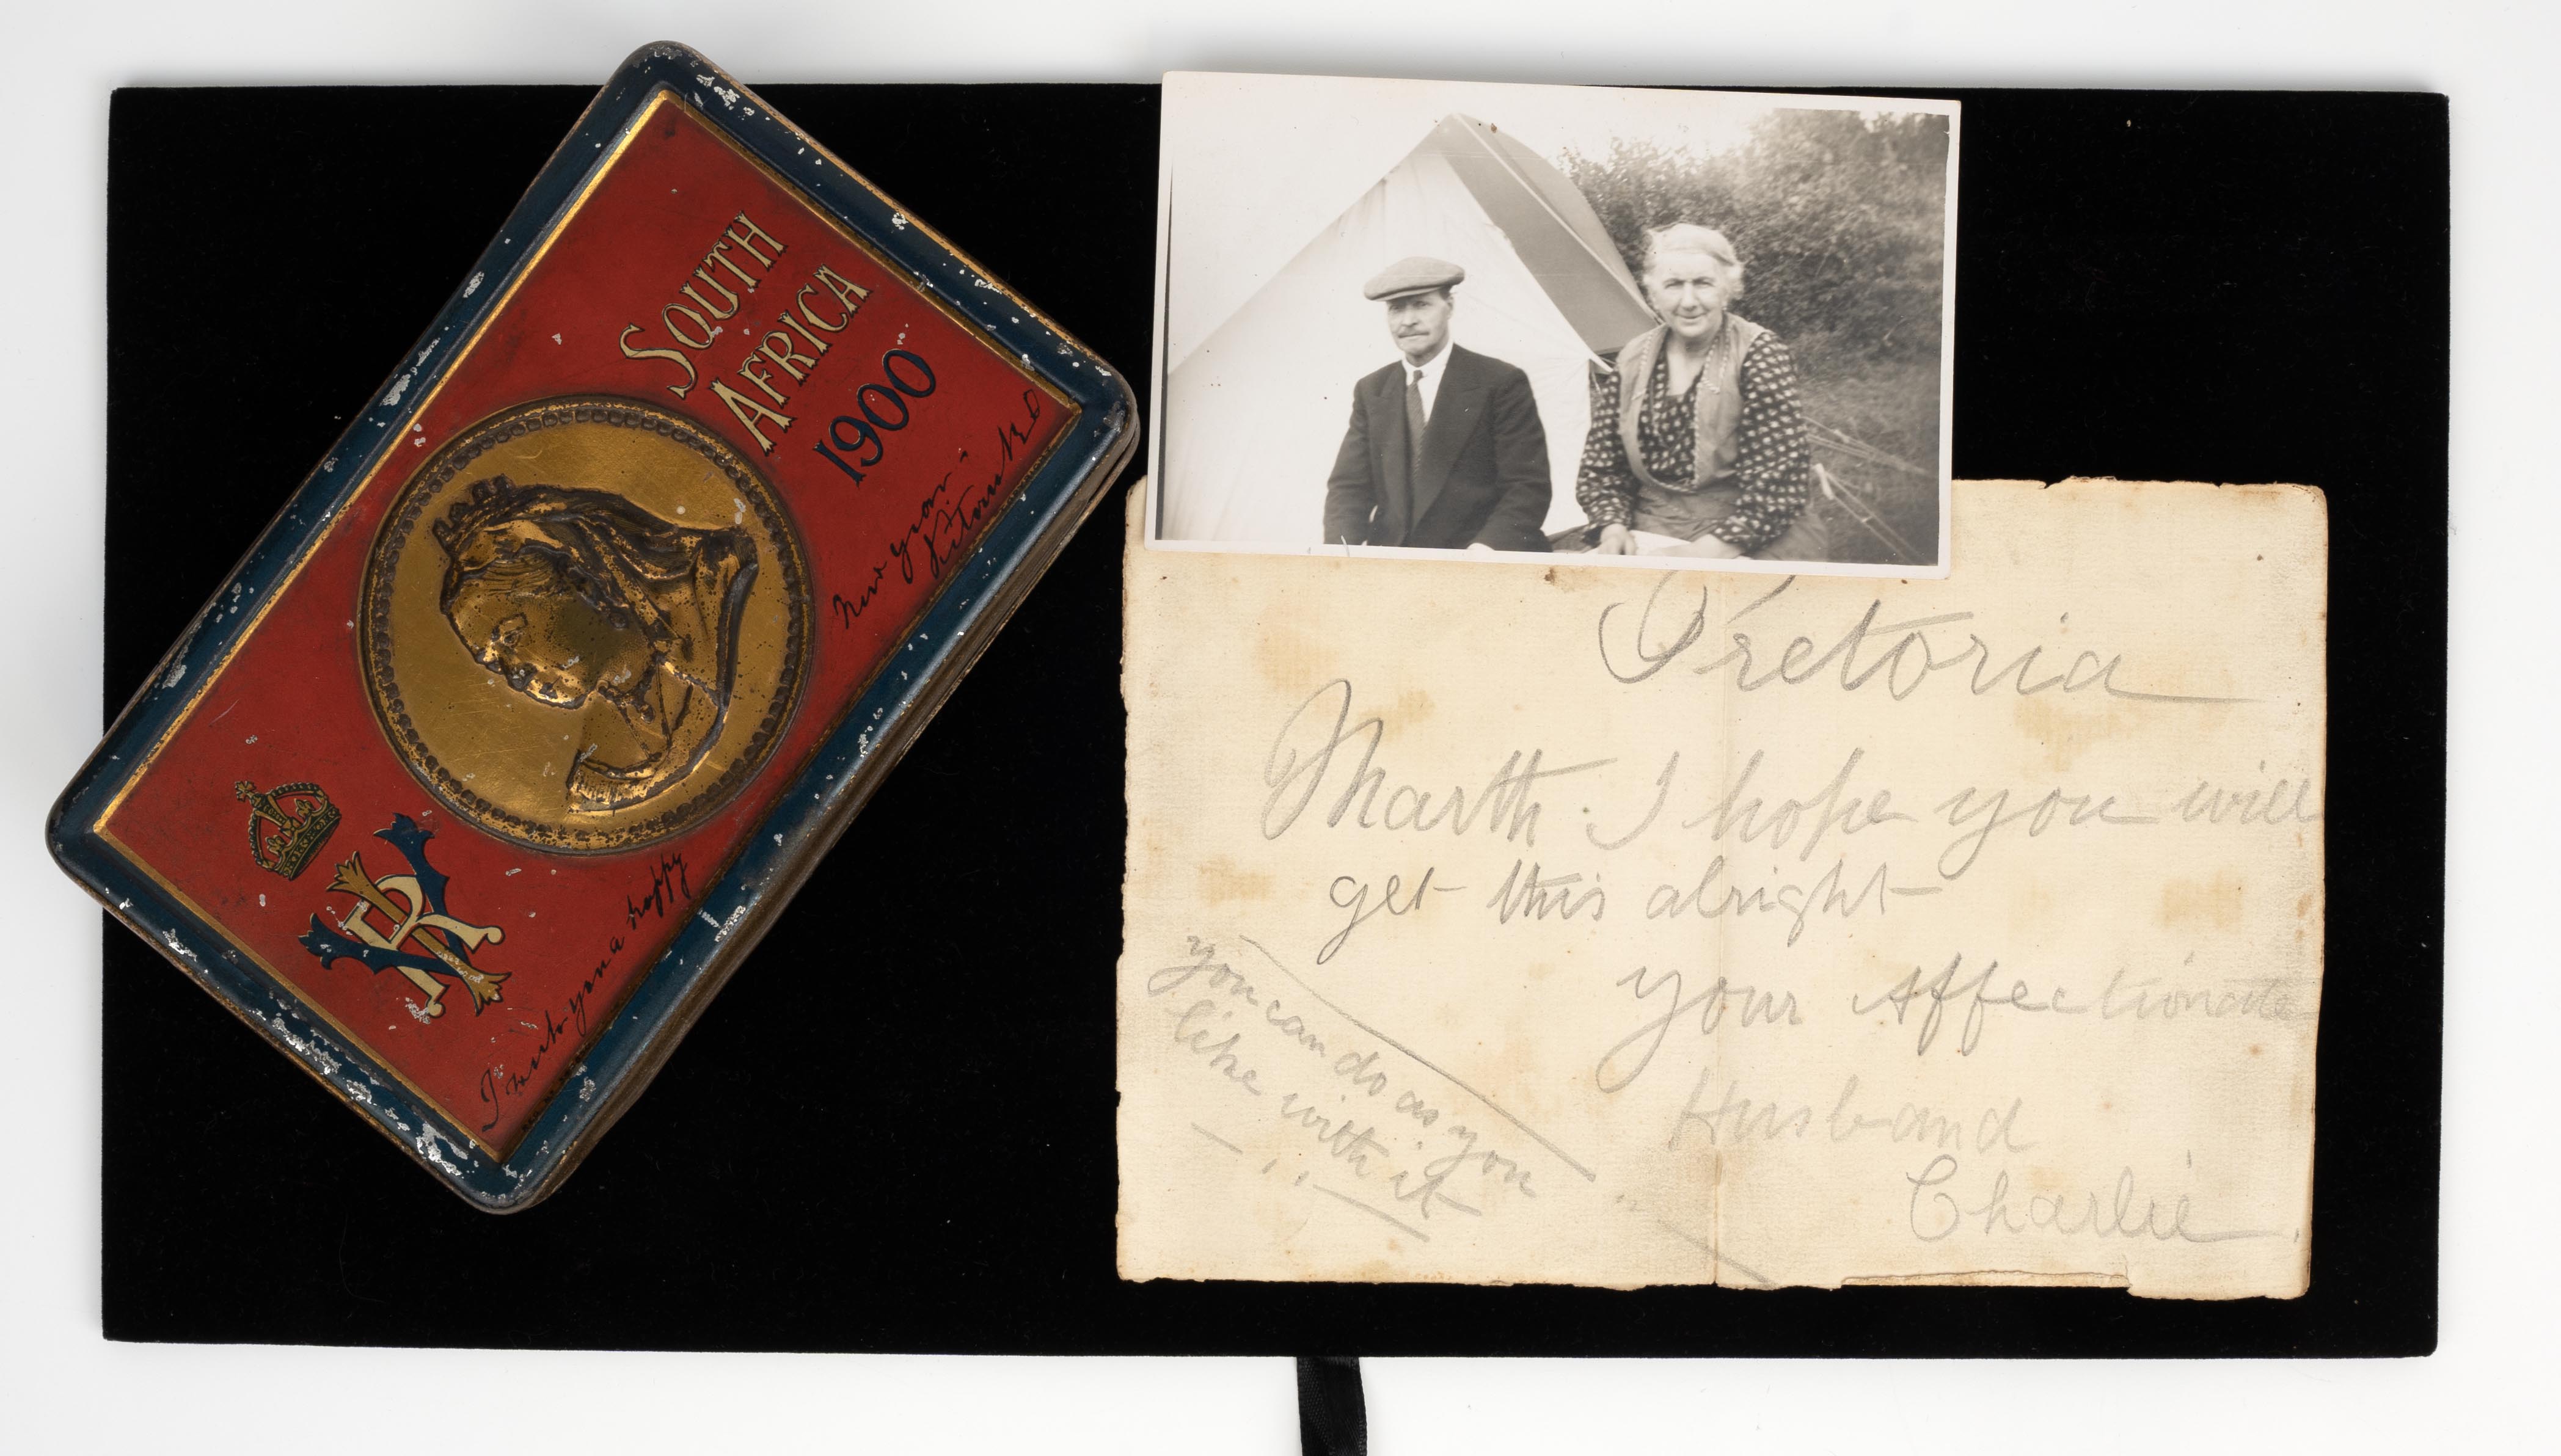 SOUTH
AFRICA
1900
I wish you a happy
New year.
Victoria RI
VRI
Pretoria
Marth I hope you will
get this alright
your Affectionate
Husband
Charlie
you can do as you
like with it